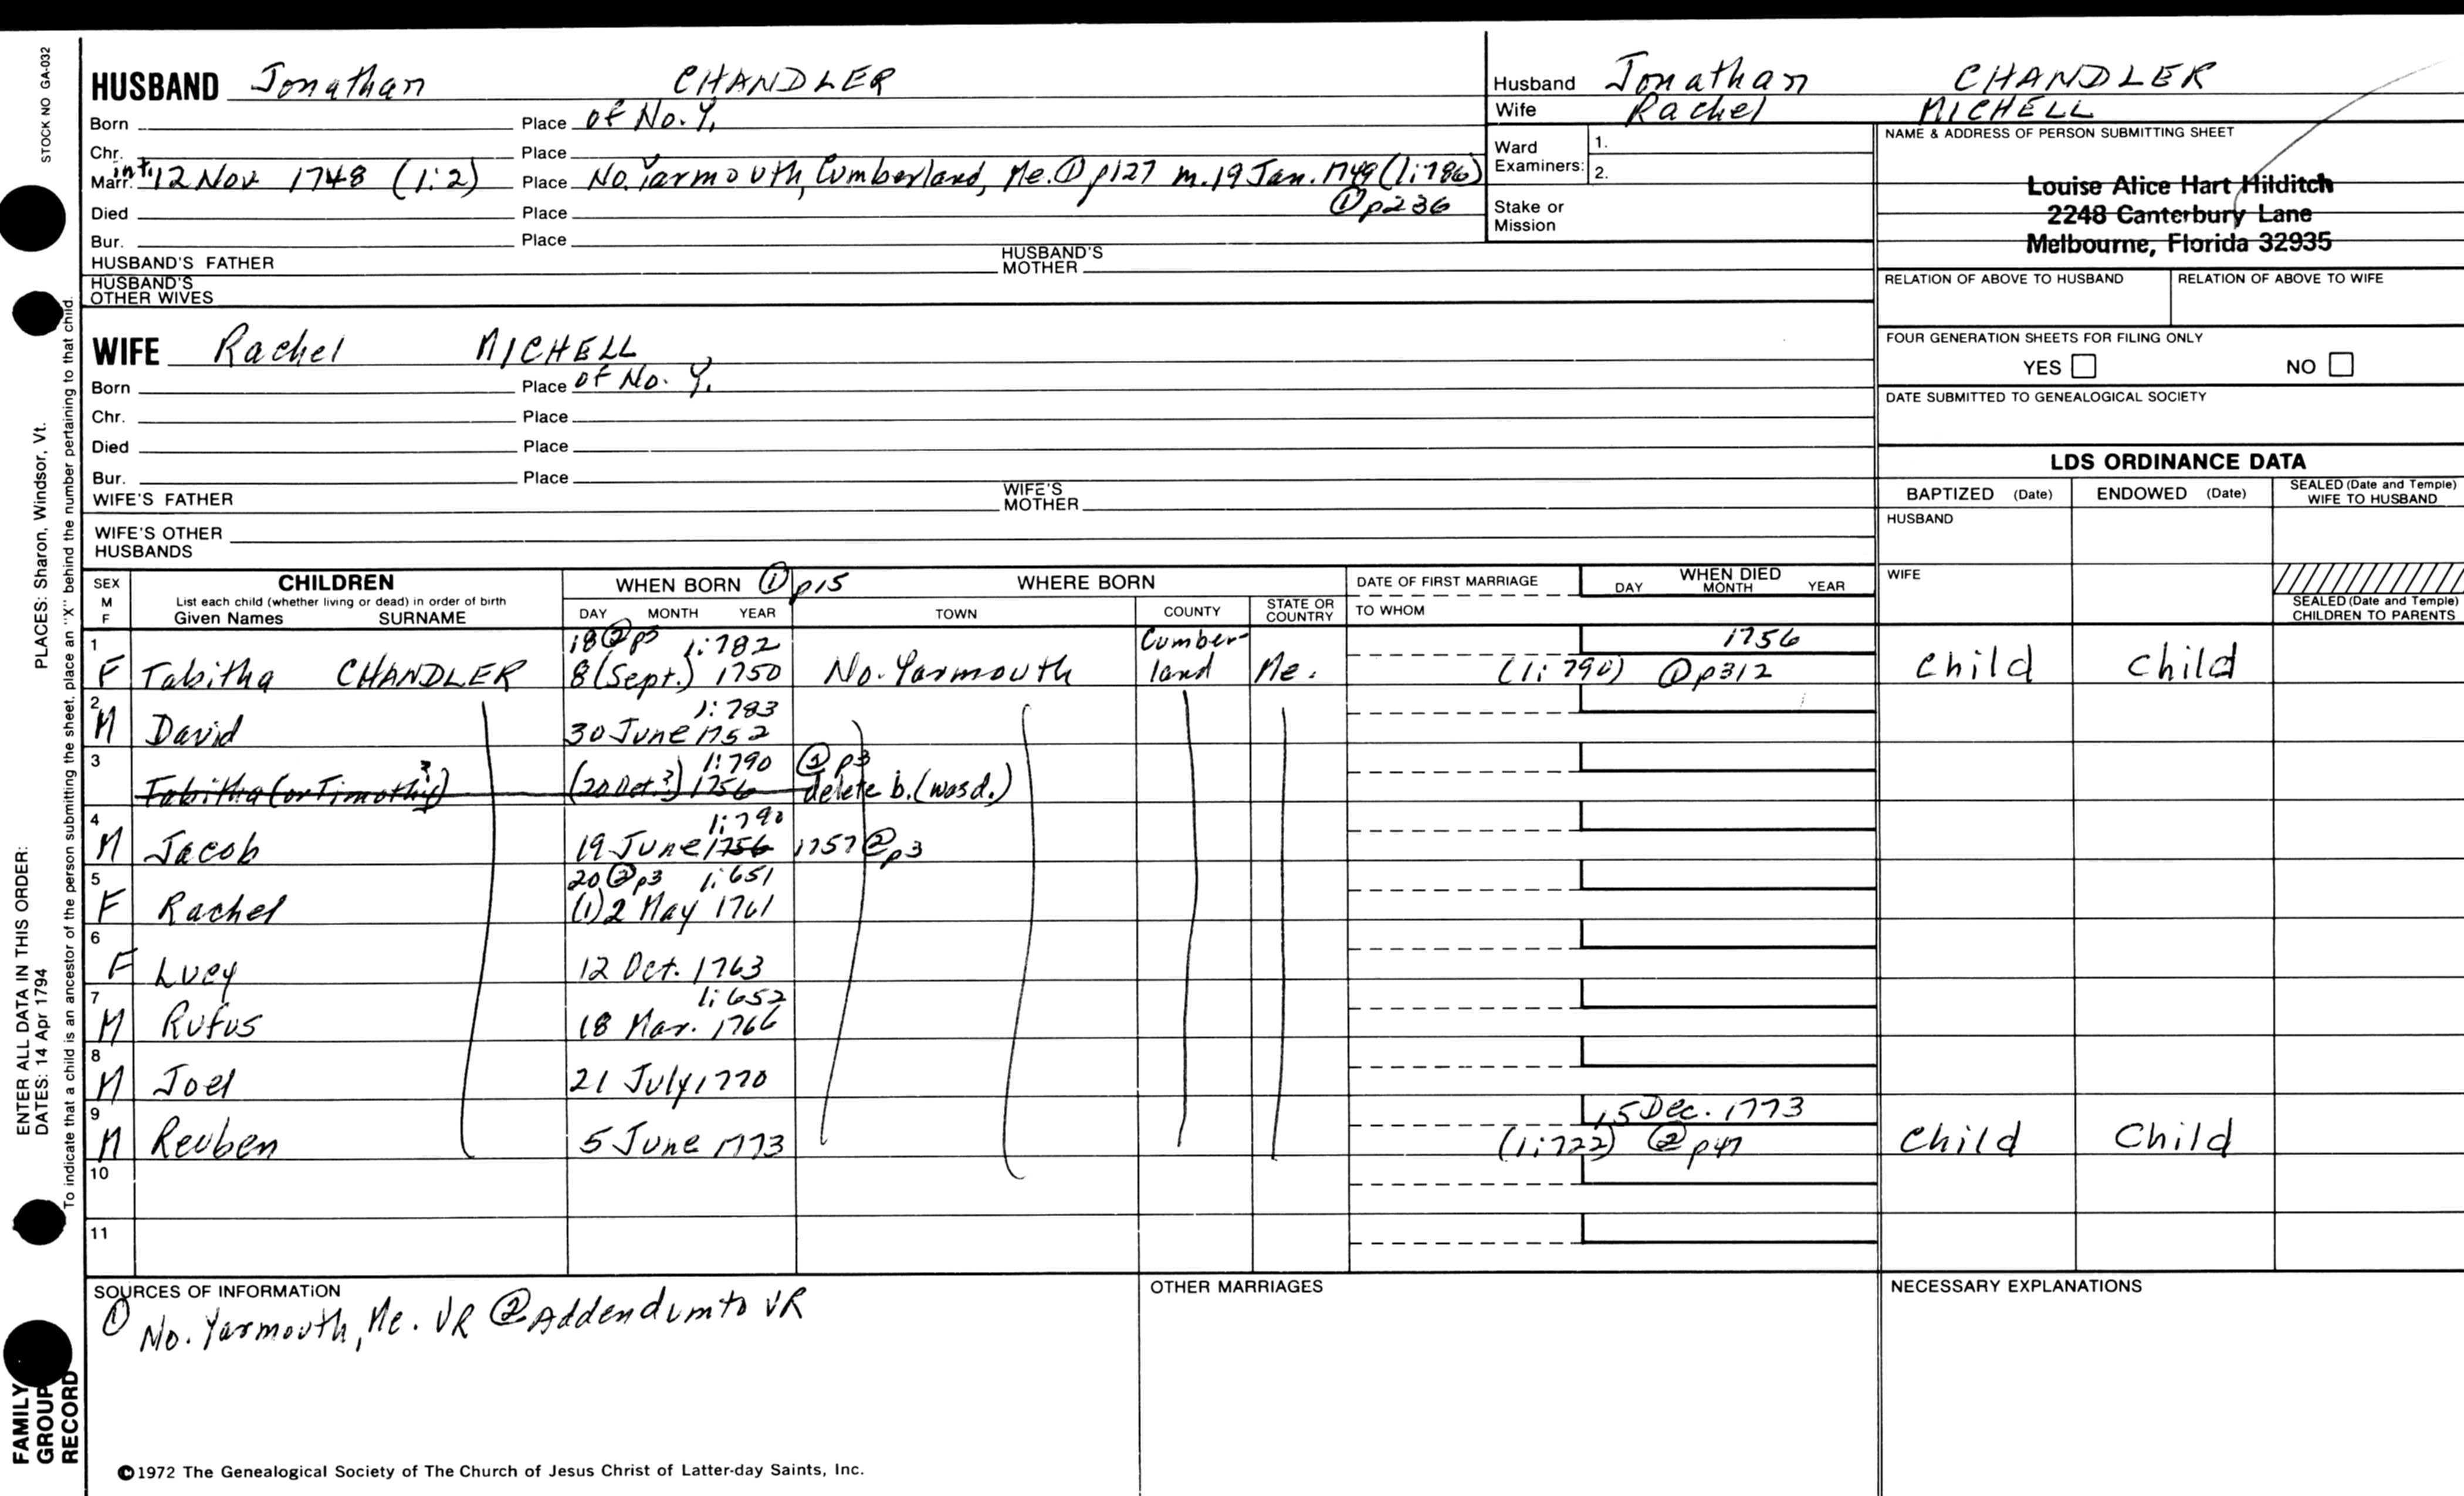 STOCK NO GA-032
HUSBAND Jonathan CHANDLER
Born Place of No. Y.
Chr. Place
Marr. int. 12 Nov 1748 (1:2) Place No. Yarmouth, Cumberland, Me. ① p127 m. 19 Jan. 1749 (1:786)
① p236
Died Place
Bur. Place
HUSBAND'S FATHER HUSBAND'S MOTHER
HUSBAND'S OTHER WIVES
WIFE Rachel MICHELL
Born Place of No. Y.
Chr. Place
Died Place
Bur. Place
WIFE'S FATHER WIFE'S MOTHER
WIFE'S OTHER HUSBANDS
Husband Jonathan CHANDLER
Wife Rachel MICHELL
Ward Examiners: 1. 2.
Stake or Mission
NAME & ADDRESS OF PERSON SUBMITTING SHEET
Louise Alice Hart Hilditch
2248 Canterbury Lane
Melbourne, Florida 32935
RELATION OF ABOVE TO HUSBAND RELATION OF ABOVE TO WIFE
FOUR GENERATION SHEETS FOR FILING ONLY
YES NO
DATE SUBMITTED TO GENEALOGICAL SOCIETY
LDS ORDINANCE DATA
BAPTIZED (Date) ENDOWED (Date) SEALED (Date and Temple) WIFE TO HUSBAND
HUSBAND
WIFE
SEALED (Date and Temple) CHILDREN TO PARENTS
SEX M F
CHILDREN
List each child (whether living or dead) in order of birth
Given Names SURNAME
WHEN BORN ① p15 WHERE BORN
DAY MONTH YEAR TOWN COUNTY STATE OR COUNTRY
DATE OF FIRST MARRIAGE
TO WHOM
WHEN DIED
DAY MONTH YEAR
1 18 ② p3 1:782 Cumber- 1756
F Tabitha CHANDLER 8 (Sept.) 1750 No. Yarmouth land Me. (1:790) ① p312 Child Child
2 1:783
M David 30 June 1752
3 1:790 ② p3
Tabitha (or Timothy?) (20 Oct.?) 1756 delete b. (was d.)
4 1:790
M Jacob 19 June 1756 1757 ② p3
5 20 ② p3 1:651
F Rachel (1) 2 May 1761
6
F Lucy 12 Oct. 1763
7 1:652
M Rufus 18 Mar. 1766
8
M Joel 21 July 1770
9 15 Dec. 1773
M Reuben 5 June 1773 (1:722) ② p47 Child Child
10
11
SOURCES OF INFORMATION
① No. Yarmouth, Me. VR ② Addendum to VR
OTHER MARRIAGES
NECESSARY EXPLANATIONS
©1972 The Genealogical Society of The Church of Jesus Christ of Latter-day Saints, Inc.
FAMILY GROUP RECORD
ENTER ALL DATA IN THIS ORDER:
DATES: 14 Apr 1794
PLACES: Sharon, Windsor, Vt.
To indicate that a child is an ancestor of the person submitting the sheet, place an "X" behind the number pertaining to that child.